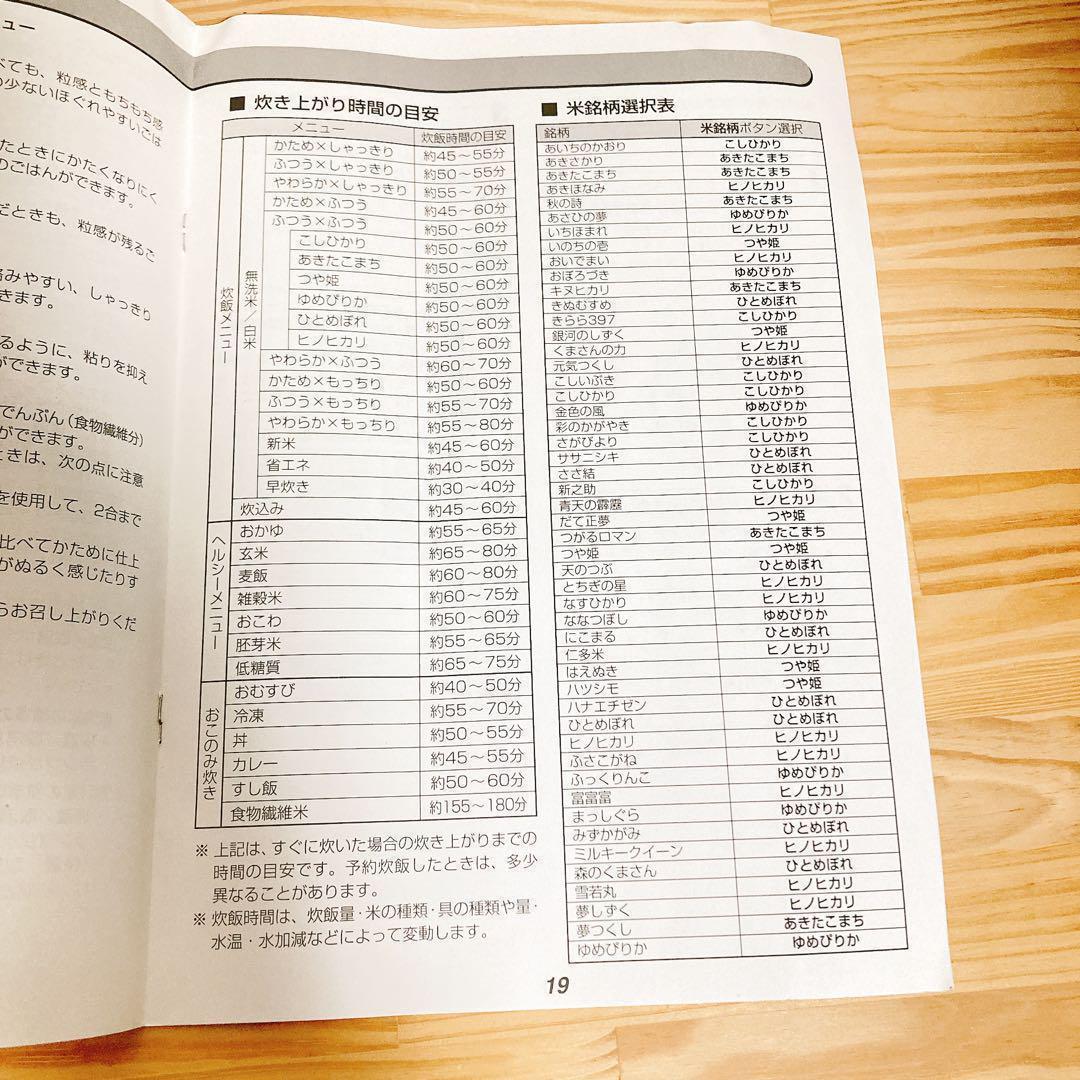 ュー
べても、粒感ともちもち感
の少ないほぐれやすいごは
たときにかたくなりにく
のごはんができます。
どときも、粒感が残るご
絡みやすい、しゃっきり
きます。
るように、粘りを抑え
ができます。
でんぷん(食物繊維分)
ができます。
ときは、次の点に注意
を使用して、2合まで
比べてかために仕上
がぬるく感じたりす
らお召し上がりくだ
■ 炊き上がり時間の目安
メニュー 炊飯時間の目安
炊飯メニュー
無洗米/白米
かため×しゃっきり 約45~55分
ふつう×しゃっきり 約50~55分
やわらか×しゃっきり 約55~70分
かため×ふつう 約45~60分
ふつう×ふつう 約50~60分
こしひかり 約50~60分
あきたこまち 約50~60分
つや姫 約50~60分
ゆめぴりか 約50~60分
ひとめぼれ 約50~60分
ヒノヒカリ 約50~60分
やわらか×ふつう 約60~70分
かため×もっちり 約50~60分
ふつう×もっちり 約55~70分
やわらか×もっちり 約55~80分
新米 約45~60分
省エネ 約40~50分
早炊き 約30~40分
炊込み 約45~60分
ヘルシーメニュー
おかゆ 約55~65分
玄米 約65~80分
麦飯 約60~80分
雑穀米 約60~75分
おこわ 約50~60分
胚芽米 約55~65分
低糖質 約65~75分
おこのみ炊き
おむすび 約40~50分
冷凍 約55~70分
丼 約50~55分
カレー 約45~55分
すし飯 約50~60分
食物繊維米 約155~180分
※ 上記は、すぐに炊いた場合の炊き上がりまでの
時間の目安です。予約炊飯したときは、多少
異なることがあります。
※ 炊飯時間は、炊飯量・米の種類・具の種類や量・
水温・水加減などによって変動します。
■ 米銘柄選択表
銘柄 米銘柄ボタン選択
あいちのかおり こしひかり
あきさかり あきたこまち
あきたこまち あきたこまち
あきほなみ ヒノヒカリ
秋の詩 あきたこまち
あさひの夢 ゆめぴりか
いちほまれ ヒノヒカリ
いのちの壱 つや姫
おいでまい ヒノヒカリ
おぼろづき ゆめぴりか
キヌヒカリ あきたこまち
きぬむすめ ひとめぼれ
きらら397 こしひかり
銀河のしずく つや姫
くまさんの力 ヒノヒカリ
元気つくし ひとめぼれ
こしいぶき こしひかり
こしひかり こしひかり
金色の風 ゆめぴりか
彩のかがやき こしひかり
さがびより こしひかり
ササニシキ ひとめぼれ
ささ結 ひとめぼれ
新之助 こしひかり
青天の霹靂 ヒノヒカリ
だて正夢 つや姫
つがるロマン あきたこまち
つや姫 つや姫
天のつぶ ひとめぼれ
とちぎの星 ヒノヒカリ
なすひかり ヒノヒカリ
ななつぼし ゆめぴりか
にこまる ひとめぼれ
仁多米 ヒノヒカリ
はえぬき つや姫
ハツシモ つや姫
ハナエチゼン ひとめぼれ
ひとめぼれ ひとめぼれ
ヒノヒカリ ヒノヒカリ
ふさこがね ヒノヒカリ
ふっくりんこ ゆめぴりか
富富富 ヒノヒカリ
まっしぐら ゆめぴりか
みずかがみ ひとめぼれ
ミルキークイーン ヒノヒカリ
森のくまさん ひとめぼれ
雪若丸 ヒノヒカリ
夢しずく ヒノヒカリ
夢つくし あきたこまち
ゆめぴりか ゆめぴりか
19